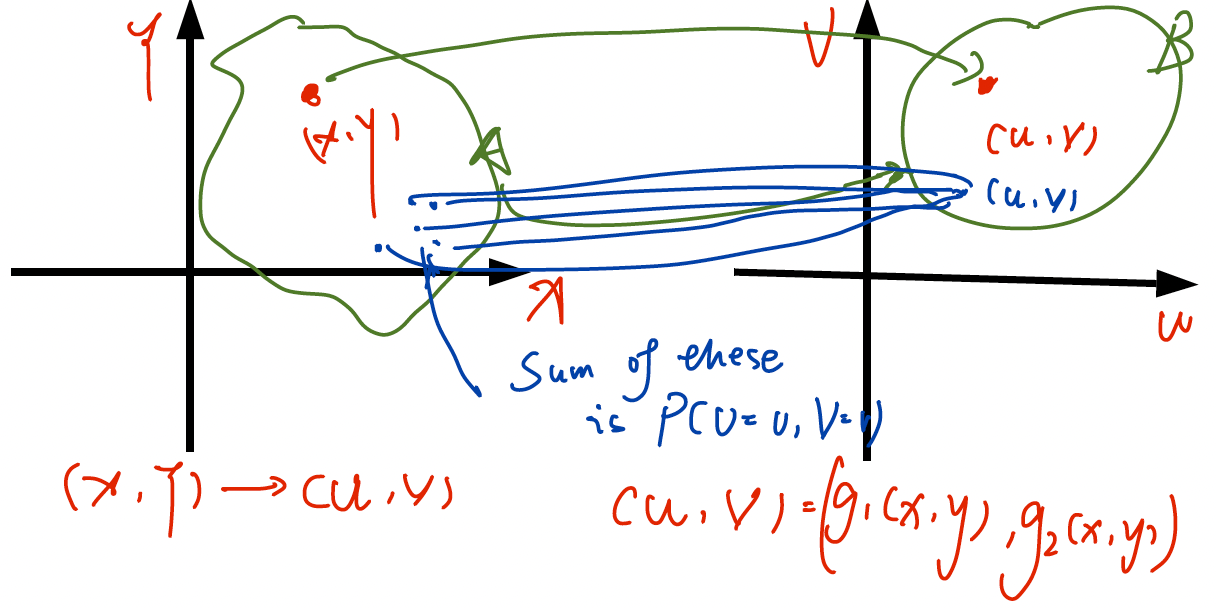 Y
V
B
(x, y)
A
(u, v)
(u, v)
X
u
Sum of these
is P(U=u, V=v)
(X, Y) → (U, V)
(U, V) = (g₁(x, y), g₂(x, y))